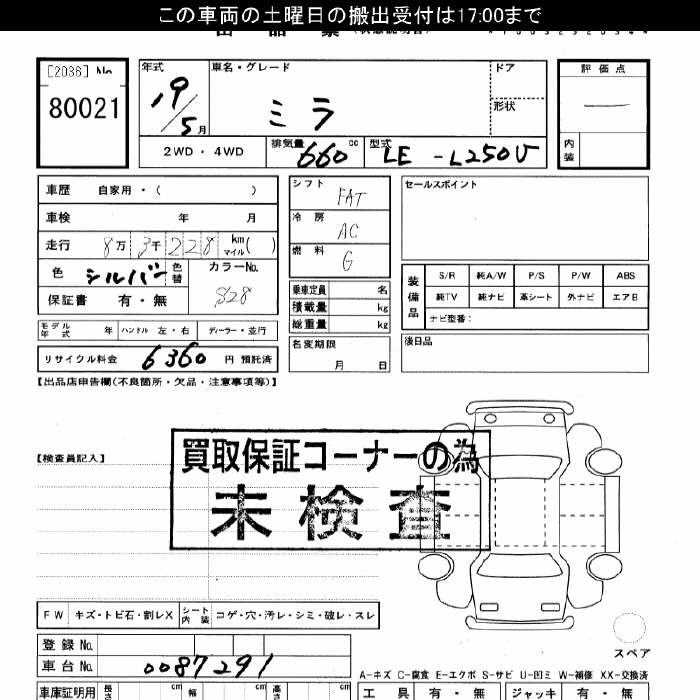 この車両の土曜日の搬出受付は17:00まで
[2036] No.
80021
年式
19/5月
車名・グレード
ミラ
ドア
形状
評価点
—
内装
2WD・4WD
排気量 660 cc
型式 LE-L250V
車歴 自家用・( )
車検 年 月
走行 8万3千228 km マイル( )
色 シルバー 色替
カラーNo. S28
保証書 有・無
シフト FAT
冷房 AC
燃料 G
乗車定員 名
積載量 kg
総重量 kg
名変期限 月 日
セールスポイント
装備品
S/R 純A/W P/S P/W ABS
純TV 純ナビ 革シート 外ナビ エアB
ナビ型番:
後日品
モデル年式 年 ハンドル 左・右 ディーラー・並行
リサイクル料金 6360 円 預託済
【出品店申告欄(不良箇所・欠品・注意事項等)】
【検査員記入】
買取保証コーナーの為
未検査
FW キズ・トビ石・割レX シート内装 コゲ・穴・汚レ・シミ・破レ・スレ
登録No.
車台No. 0087291
スペア
A-キズ C-腐食 E-エクボ S-サビ U-凹ミ W-補修 XX-交換済
車庫証明用 長さ cm 幅 cm 高さ cm
工具 有・無 ジャッキ 有・無